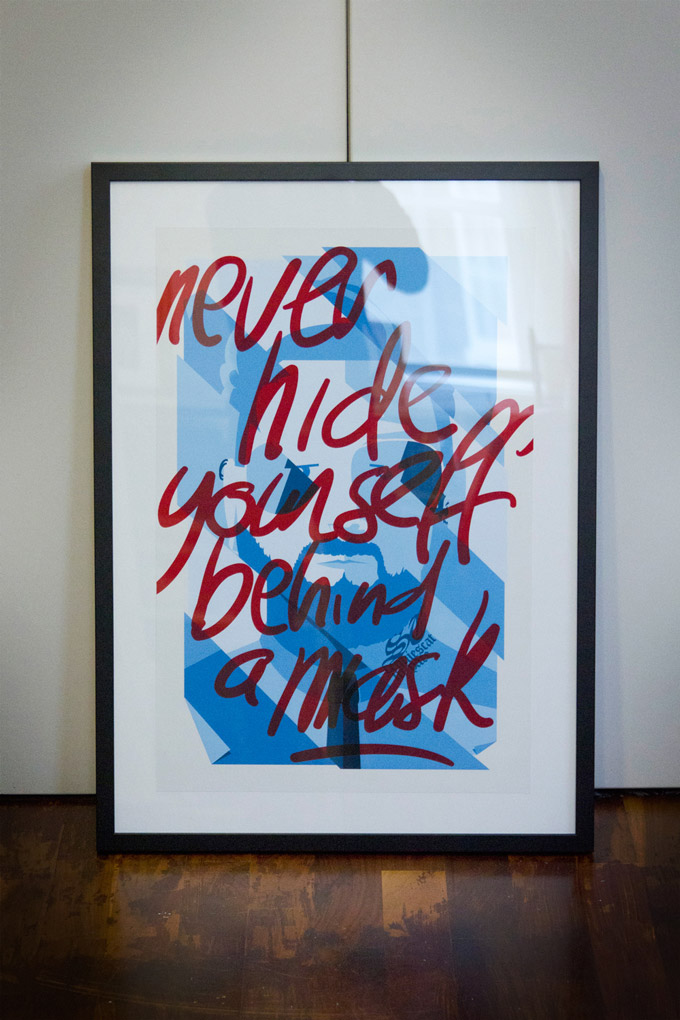 never
hide
yourself
behind
a mask